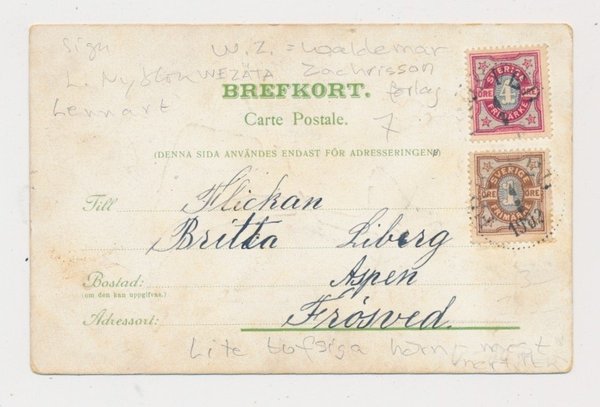 Sign
L. Nyblom
Lennart
W. Z. = Waldemar
WEZÄTA Zachrisson
förlag
7
BREFKORT.
Carte Postale.
(DENNA SIDA ANVÄNDES ENDAST FÖR ADRESSERINGEN)
SVERIGE
ÖRE 4 ÖRE
FRIMÄRKE
SVERIGE
ÖRE 1 ÖRE
FRIMÄRKE
1903
Till Flickan
Britta Liberg
Bostad: Aspen
(om den kan uppgifvas.)
Adressort: Frösved.
Lite tufsiga hörn